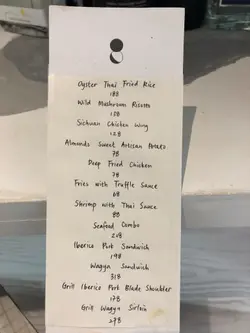 Oyster Thai Fried Rice
18$
Wild Mushroom Risotto
15$
Sichuan Chicken Wing
12$
Almonds Sweet Artisan
7$
Deep Fried Chicken
7$
Fries with Truffle Sauce
6$
Shrimp with Thai Sauce
8$
Seafood Combo
20$
Iberico Pork Sandwich
19$
Wagyu Sandwich
31$
Grill Iberico Pork Blade Shoulder
17$
Grill Wagyu Sirloin
27$